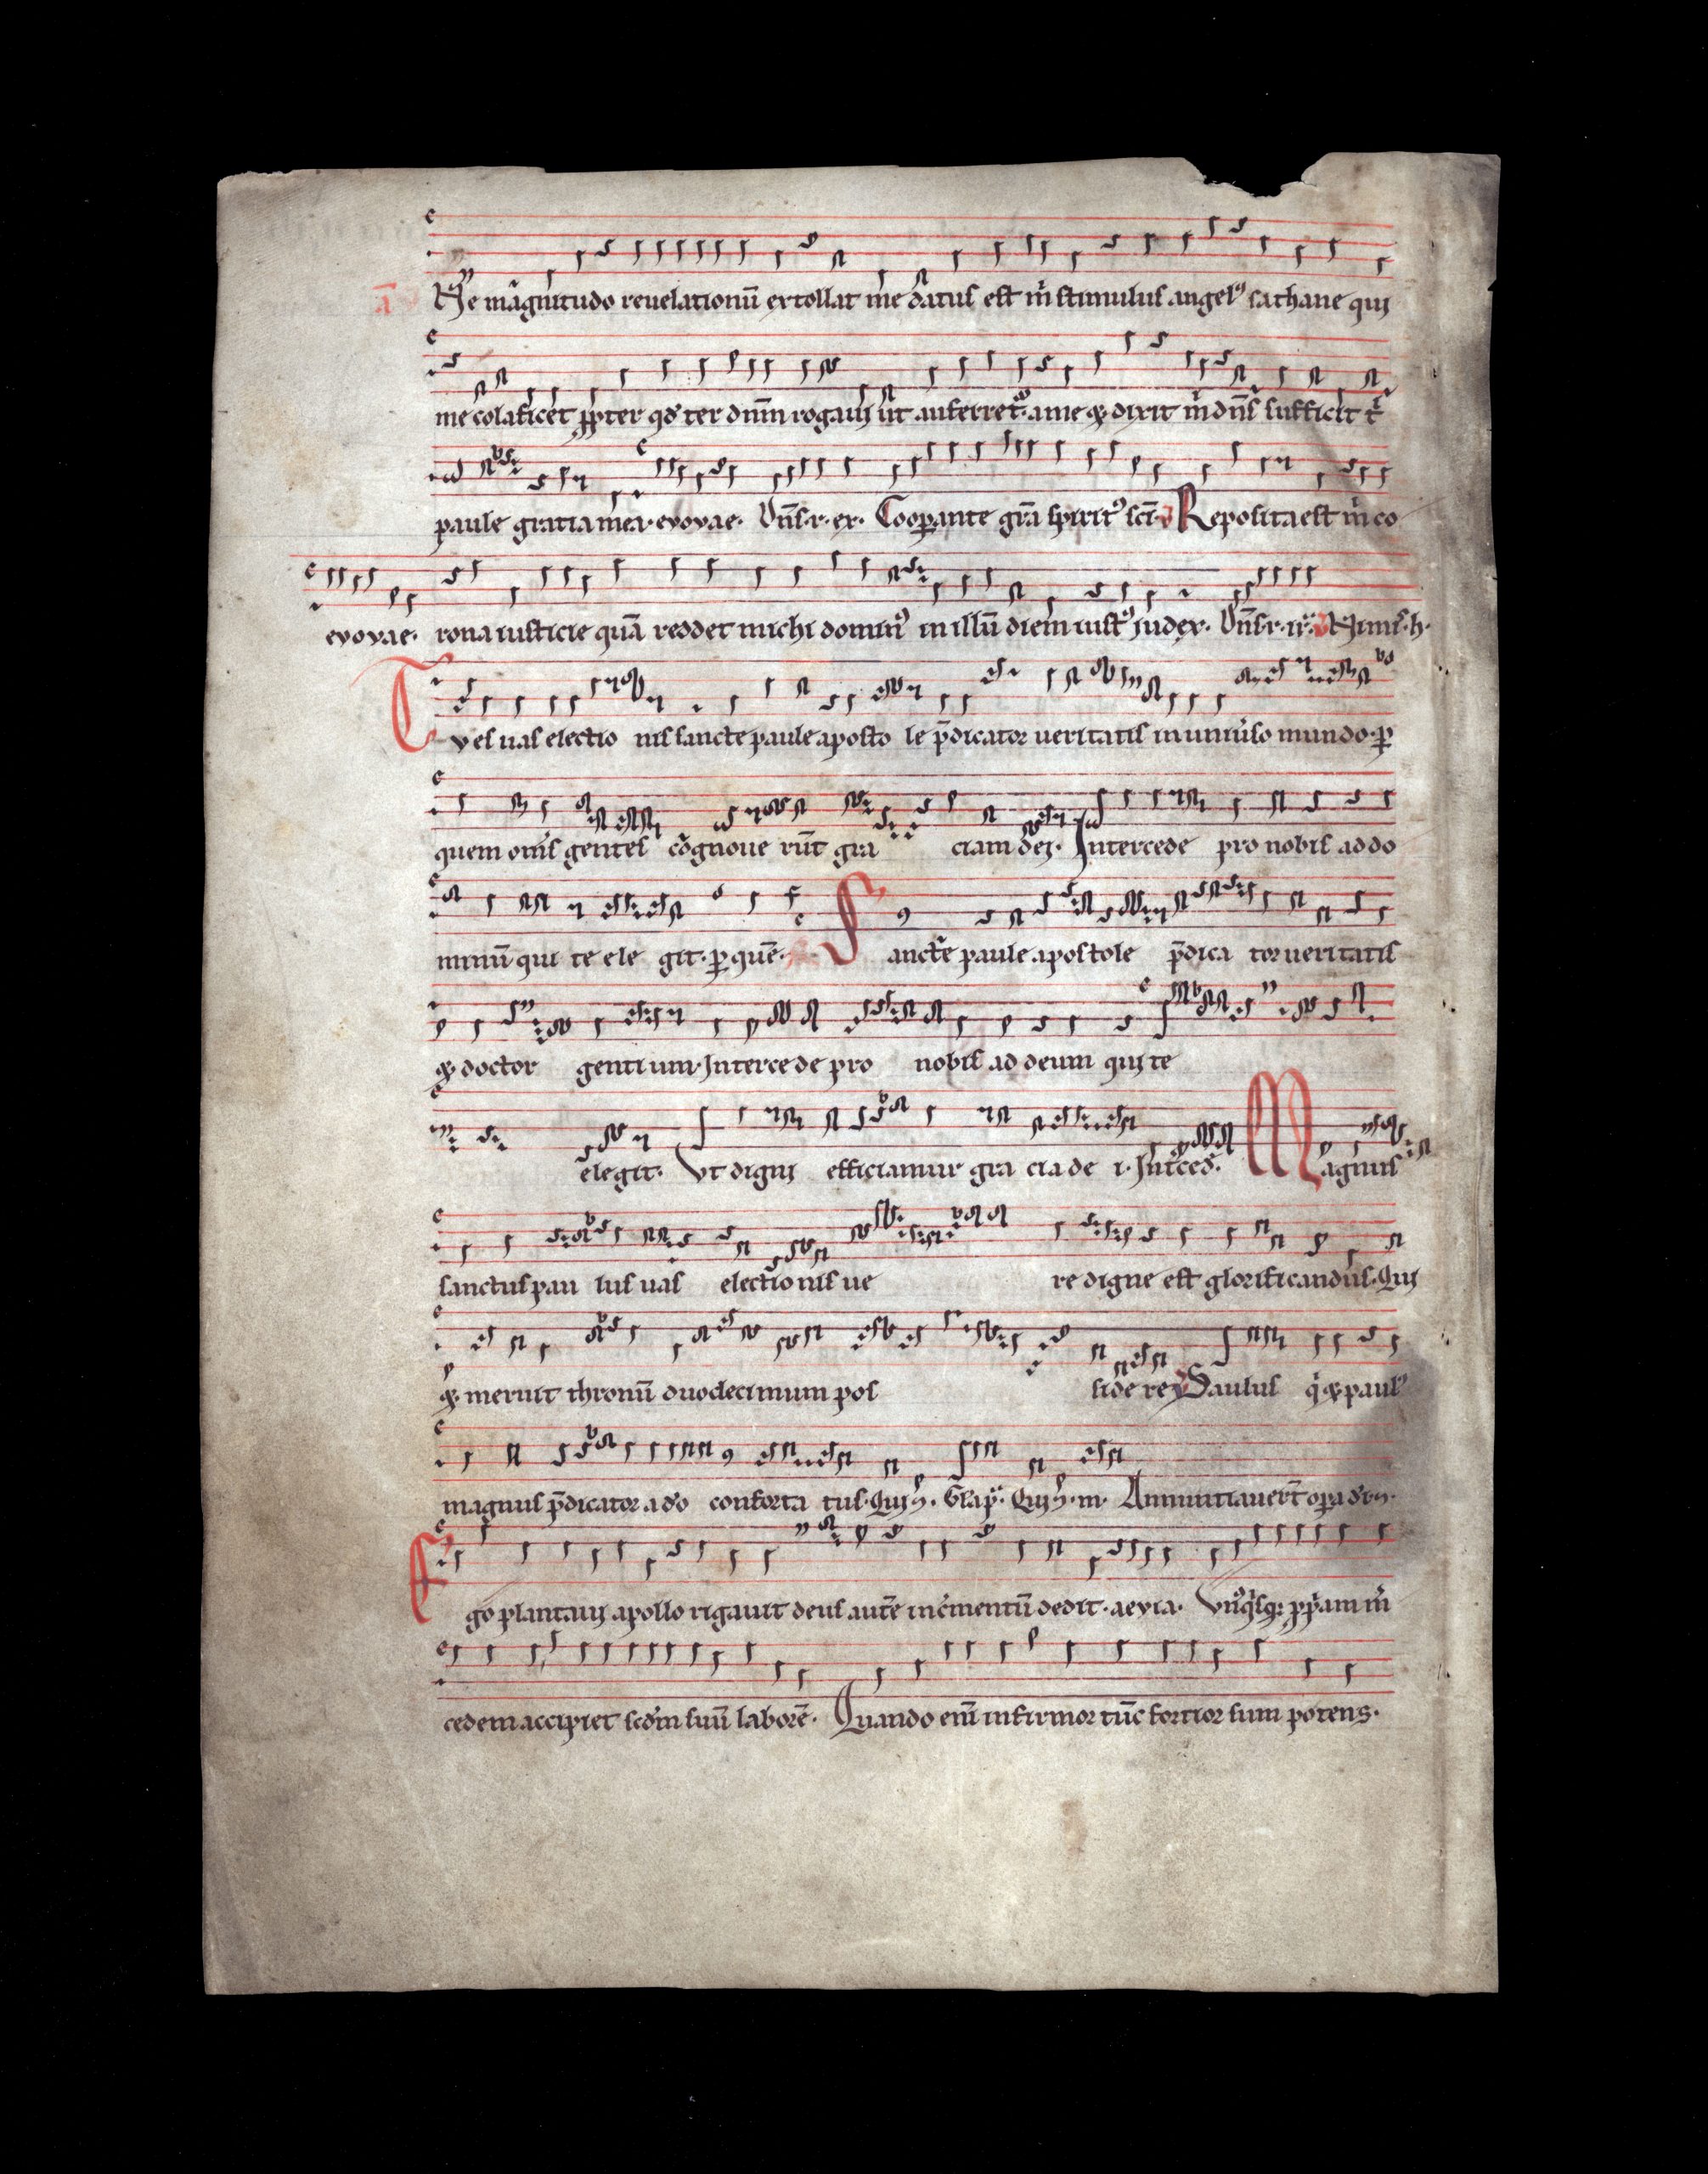 a̅ Ne mãgnitudo reuelationũ extollat me datus est m̃ stimulus angel᷒ sathane qui
me colaficet ꝓpter qđ ter dnm̅ rogaui ut auferret᷒ a me & dixit m̃ dn̅s sufficit t̃
paule gratia mea. evovae. Vn̅s. r. ex. Cooꝑante gr̃a spirit᷒ sc̃i. Reposita est m̃ co
evovae. rona iusticie quã reddet michi domin᷒ in illũ diem iust᷒ iudex. Vn̅s. r. ii. Nimis. h.
Tv es uas electio nis sancte paule aposto le p̃dicator ueritatis in uniũso mundo. ꝑ
quem om̃s gentes cõgnoue rũt gra ciam dei. Intercede pro nobis ad do
minũ qui te ele git. ꝑ quẽ. Sancte paule apostole p̃dica tor ueritatis
& doctor genti um. Interce de pro nobis ad deum qui te
elegit. Vt digni efficiamur gra cia de i. Int̃ced̃. Magnus
sanctus pau lus uas electio nis ue re digne est glorificandus. Qui
& meruit thronũ duodecimum pos side re. Saulus q̃ & paul᷒
magnus p̃dicator a dõ conforta tus. Qui &. Gla p̃. Qui &. m. Annuntiauer̃t oꝑa di &.
Ego plantaui apollo rigauit deus autẽ inc̃mentũ dedit. aevia. Vn᷒q̃sq; ꝓp̃am m̃
cedem accipiet scd̃m suũ laborẽ. Quando eni̅ infirmor tũc fortior sum potens.